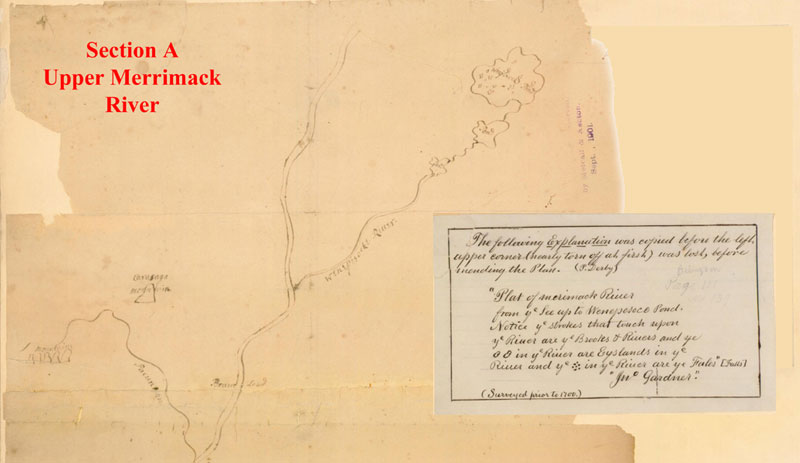 Section A
Upper Merrimack
River
Sept., 1901.
River
The following Explanation was copied before the left,
upper corner (nearly torn off at first) was lost, before
mending the Plan. (P. Derby)
"Plat of merimack River
from yᵉ See up to Wenepesoco Pond.
Notice yᵉ strokes that touch upon
yᵉ River are yᵉ Brooks & Rivers and ye
in yᵉ River are Eyslands in yᵉ
River and yᵉ in yᵉ River are ye Fales" [Falls]
"Jnᵒ Gardner".
(Surveyed prior to 1700.)